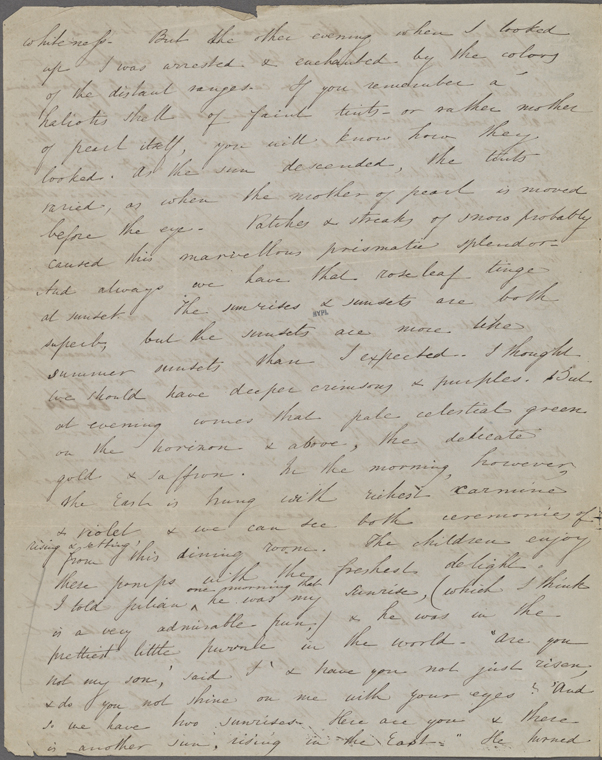 whiteness. But the other evening when I looked
up I was arrested & enchanted by the colors
of the distant ranges. If you remember a
haliotis shell of faint tints - or rather mother
of pearl itself, you will know how they
looked. As the sun descended, the tints
varied, as when the mother of pearl is moved
before the eye. Patches & streaks of snow probably
caused this marvellous prismatic splendor.
And always we have that roseleaf tinge
at sunset. The sunrises & sunsets are both
NYPL
superb, but the sunsets are more like
summer sunsets than I expected. I thought
we should have deeper crimsons & purples. But
at evening comes that pale celestial green
on the horizon & above, the delicate
gold & saffron. In the morning, however,
the East is hung with richest carmine
& violet & we can see both ceremonies of
rising & setting
from this dining room. The children enjoy
these pomps with the freshest delight.
one morning that
I told Julian he was my sunrise, (which I think
is a very admirable pun) & he was in the
prettiest little in the world. "Are you
not my son," said I "& have you not just risen,
& do you not shine on me with your eyes? And
so we have two sunrises. Here are you & there
is another sun, rising in the East." He turned